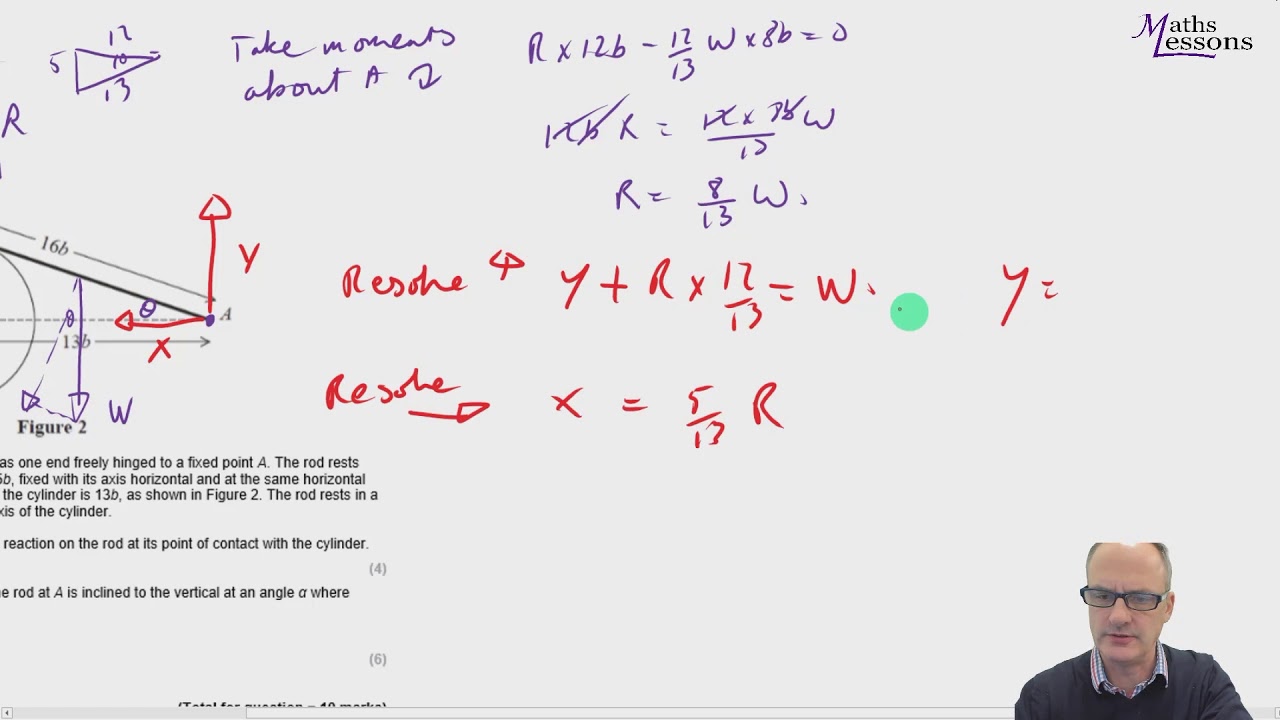 Maths
Lessons
12
5
13
Take moments
about A
R × 12b − 12/13 W × 8b = 0
12b R = 12 × 8b/13 W
R = 8/13 W.
R
16b
Y
θ
A
θ
X
13b
W
Figure 2
Resolve ↕ Y + R × 12/13 = W.
Y =
Resolve → X = 5/13 R
as one end freely hinged to a fixed point A. The rod rests
5b, fixed with its axis horizontal and at the same horizontal
the cylinder is 13b, as shown in Figure 2. The rod rests in a
xis of the cylinder.
reaction on the rod at its point of contact with the cylinder.
(4)
e rod at A is inclined to the vertical at an angle α where
(6)
(Total for question = 10 marks)